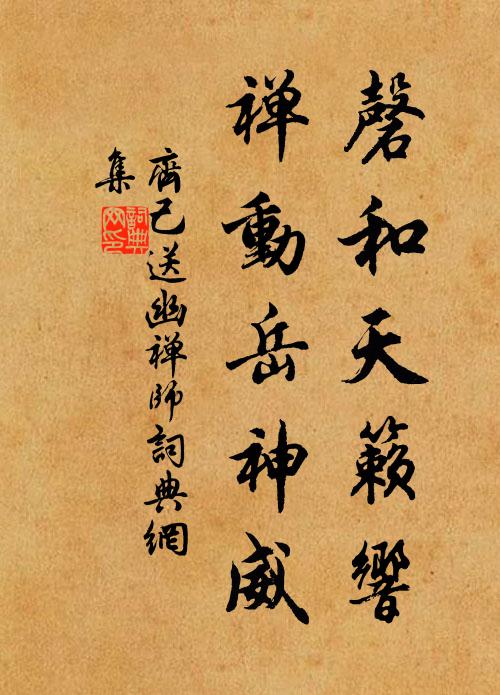 磬和天籟響
禅動岳神威
齊己送幽禅師詞典網
集
詞典
网印